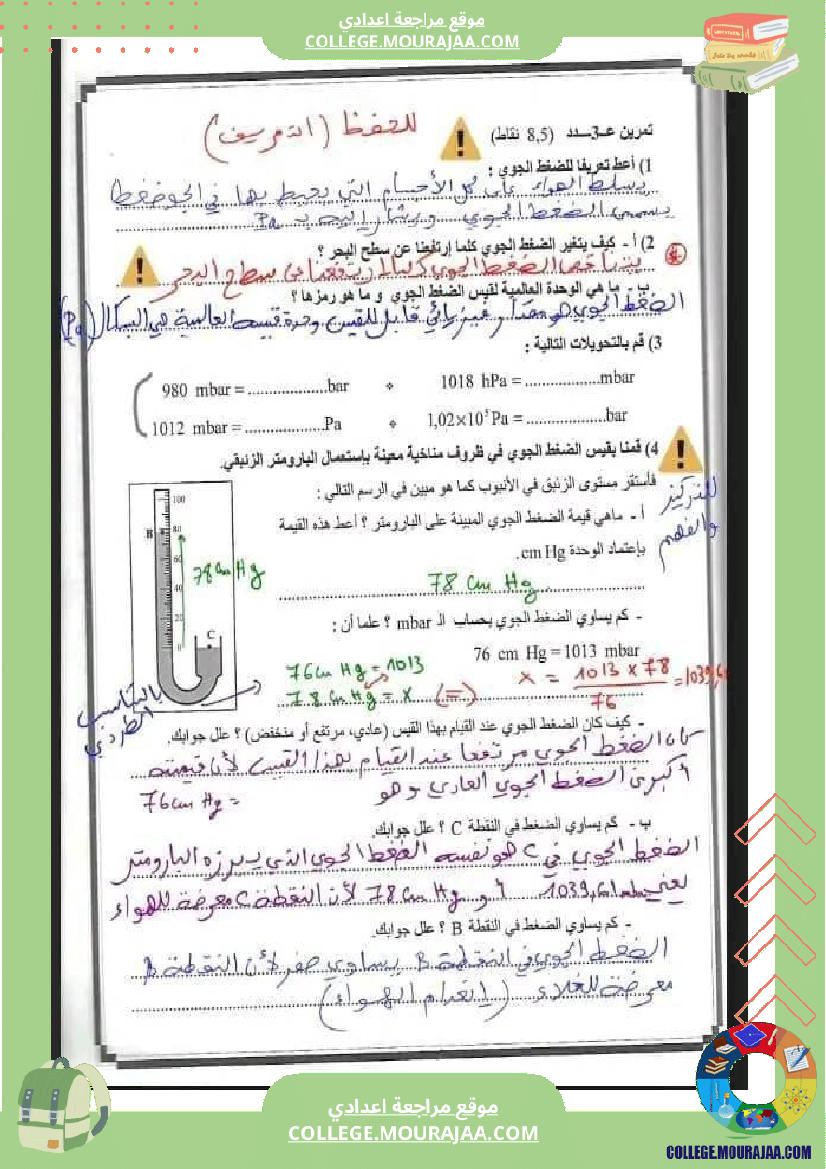 موقع مراجعة اعدادي
COLLEGE.MOURAJAA.COM
للحفظ (التعريف)
تمرين عـ3ـدد (8,5 نقاط)
1) أعط تعريفا للضغط الجوي :
يسلط الهواء على كل الأجسام التي يحيط بها في الجو ضغطا
يسمى الضغط الجوي و يشار إليه بـ Pa
2) أ - كيف يتغير الضغط الجوي كلما إرتفعنا عن سطح البحر ؟
يتناقص الضغط الجوي كلما ارتفعنا عن سطح البحر
ب - ما هي الوحدة العالمية لقيس الضغط الجوي و ما هو رمزها ؟
الضغط الجوي هو مقدار فيزيائي قابل للقيس وحدة قيسه العالمية هي البسكال (Pa)
3) قم بالتحويلات التالية :
980 mbar = ....................bar ❖ 1018 hPa = ...................mbar
1012 mbar = ....................Pa ❖ 1,02×10⁵ Pa = ....................bar
4) قمنا بقيس الضغط الجوي في ظروف مناخية معينة بإستعمال البارومتر الزئبقي.
فأستقر مستوى الزئبق في الأنبوب كما هو مبين في الرسم التالي :
للتركيز
والفهم
أ - ماهي قيمة الضغط الجوي المبينة على البارومتر ؟ أعط هذه القيمة
بإعتماد الوحدة cm Hg.
78 cm Hg
100
B
80
60
40
20
0
C
78 cm Hg
- كم يساوي الضغط الجوي بحساب الـ mbar ؟ علما أن :
76 cm Hg = 1013 mbar
76 cm Hg = 1013
78 cm Hg = x (=) x = 1013 x 78 / 76 = 1039,6
بالتناسب
الطردي
- كيف كان الضغط الجوي عند القيام بهذا القيس (عادي، مرتفع أو منخفض) ؟ علل جوابك.
كان الضغط الجوي مرتفعا عند القيام بهذا القيس لأن قيمته
أكبر من الضغط الجوي العادي و هو
76 cm Hg =
ب - كم يساوي الضغط في النقطة C ؟ علل جوابك.
الضغط الجوي في C هو نفسه الضغط الجوي الذي يبرزه البارومتر
يعني 1039,61 أو 78 cm Hg لأن النقطة C معرضة للهواء
- كم يساوي الضغط في النقطة B ؟ علل جوابك.
الضغط الجوي في النقطة B يساوي صفر لأن النقطة B
معرضة للخلاء (إنعدام الهواء)
موقع مراجعة اعدادي
COLLEGE.MOURAJAA.COM
COLLEGE.MOURAJAA.COM